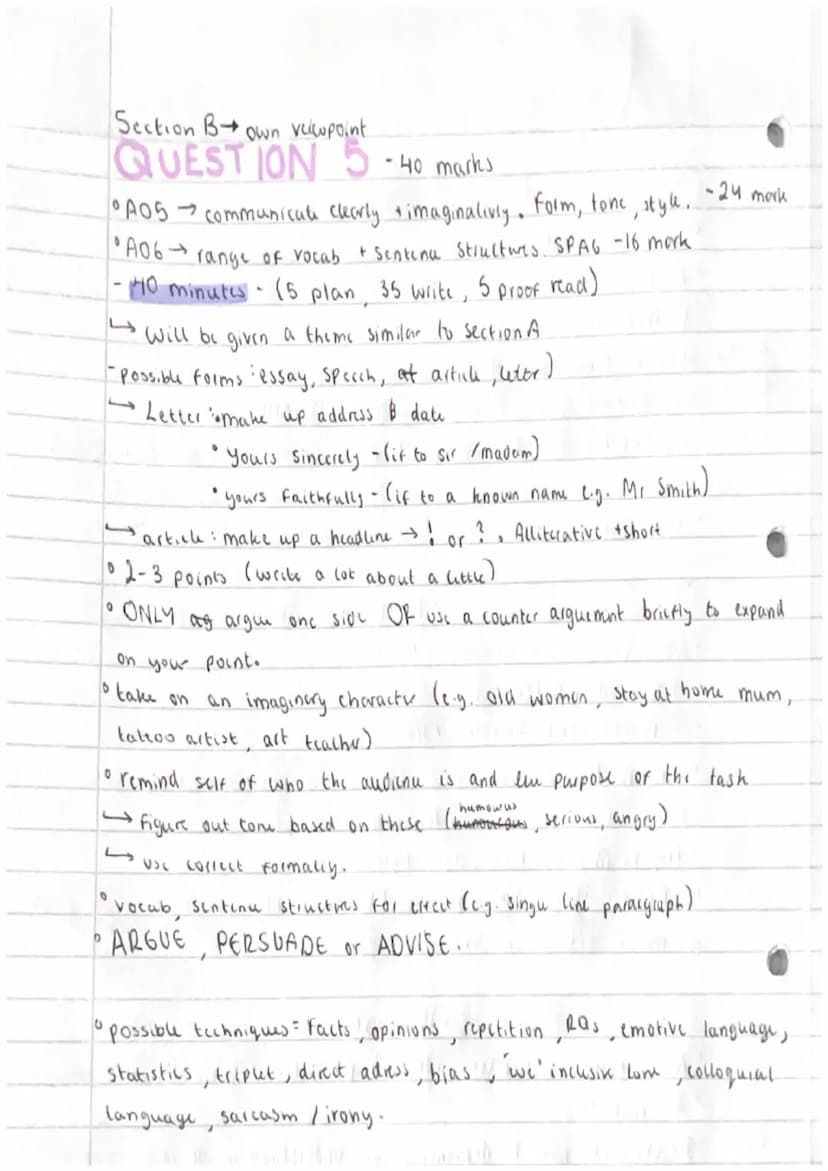 Section B→ own veiwpoint
QUESTION 5 - 40 marks
• AO5 → communicate clearly + imaginatively. Form, tone, style. - 24 mark
• AO6 → range of vocab + sentence structures. SPAG - 16 mark
- 40 minutes - (5 plan, 35 write, 5 proof read)
↳ will be given a theme similar to section A
- possible forms: essay, speech, article, letter)
↳ Letter: • make up address & date
• Yours Sincerely - (if to sir / madam)
• yours Faithfully - (if to a known name e.g. Mr Smith)
↳ article: make up a headline → ! or ?. Alliterative + short
• 2-3 points (write a lot about a little)
• ONLY argue one side OR use a counter arguement briefly to expand
on your point.
• take on an imaginary character (e.g. old women, stay at home mum,
tattoo artist, art teacher)
• remind self of who the audience is and the purpose of the task
↳ Figure out tone based on these (humourus, serious, angry)
↳ use correct formality.
• vocab, sentence structures for effect (e.g. single line paragraph)
• ARGUE, PERSUADE or ADVISE.
• possible techniques = Facts, opinions, repetition, RQs, emotive language,
statistics, triplet, direct adress, bias, 'we' inclusive tone, colloquial
language, sarcasm / irony.